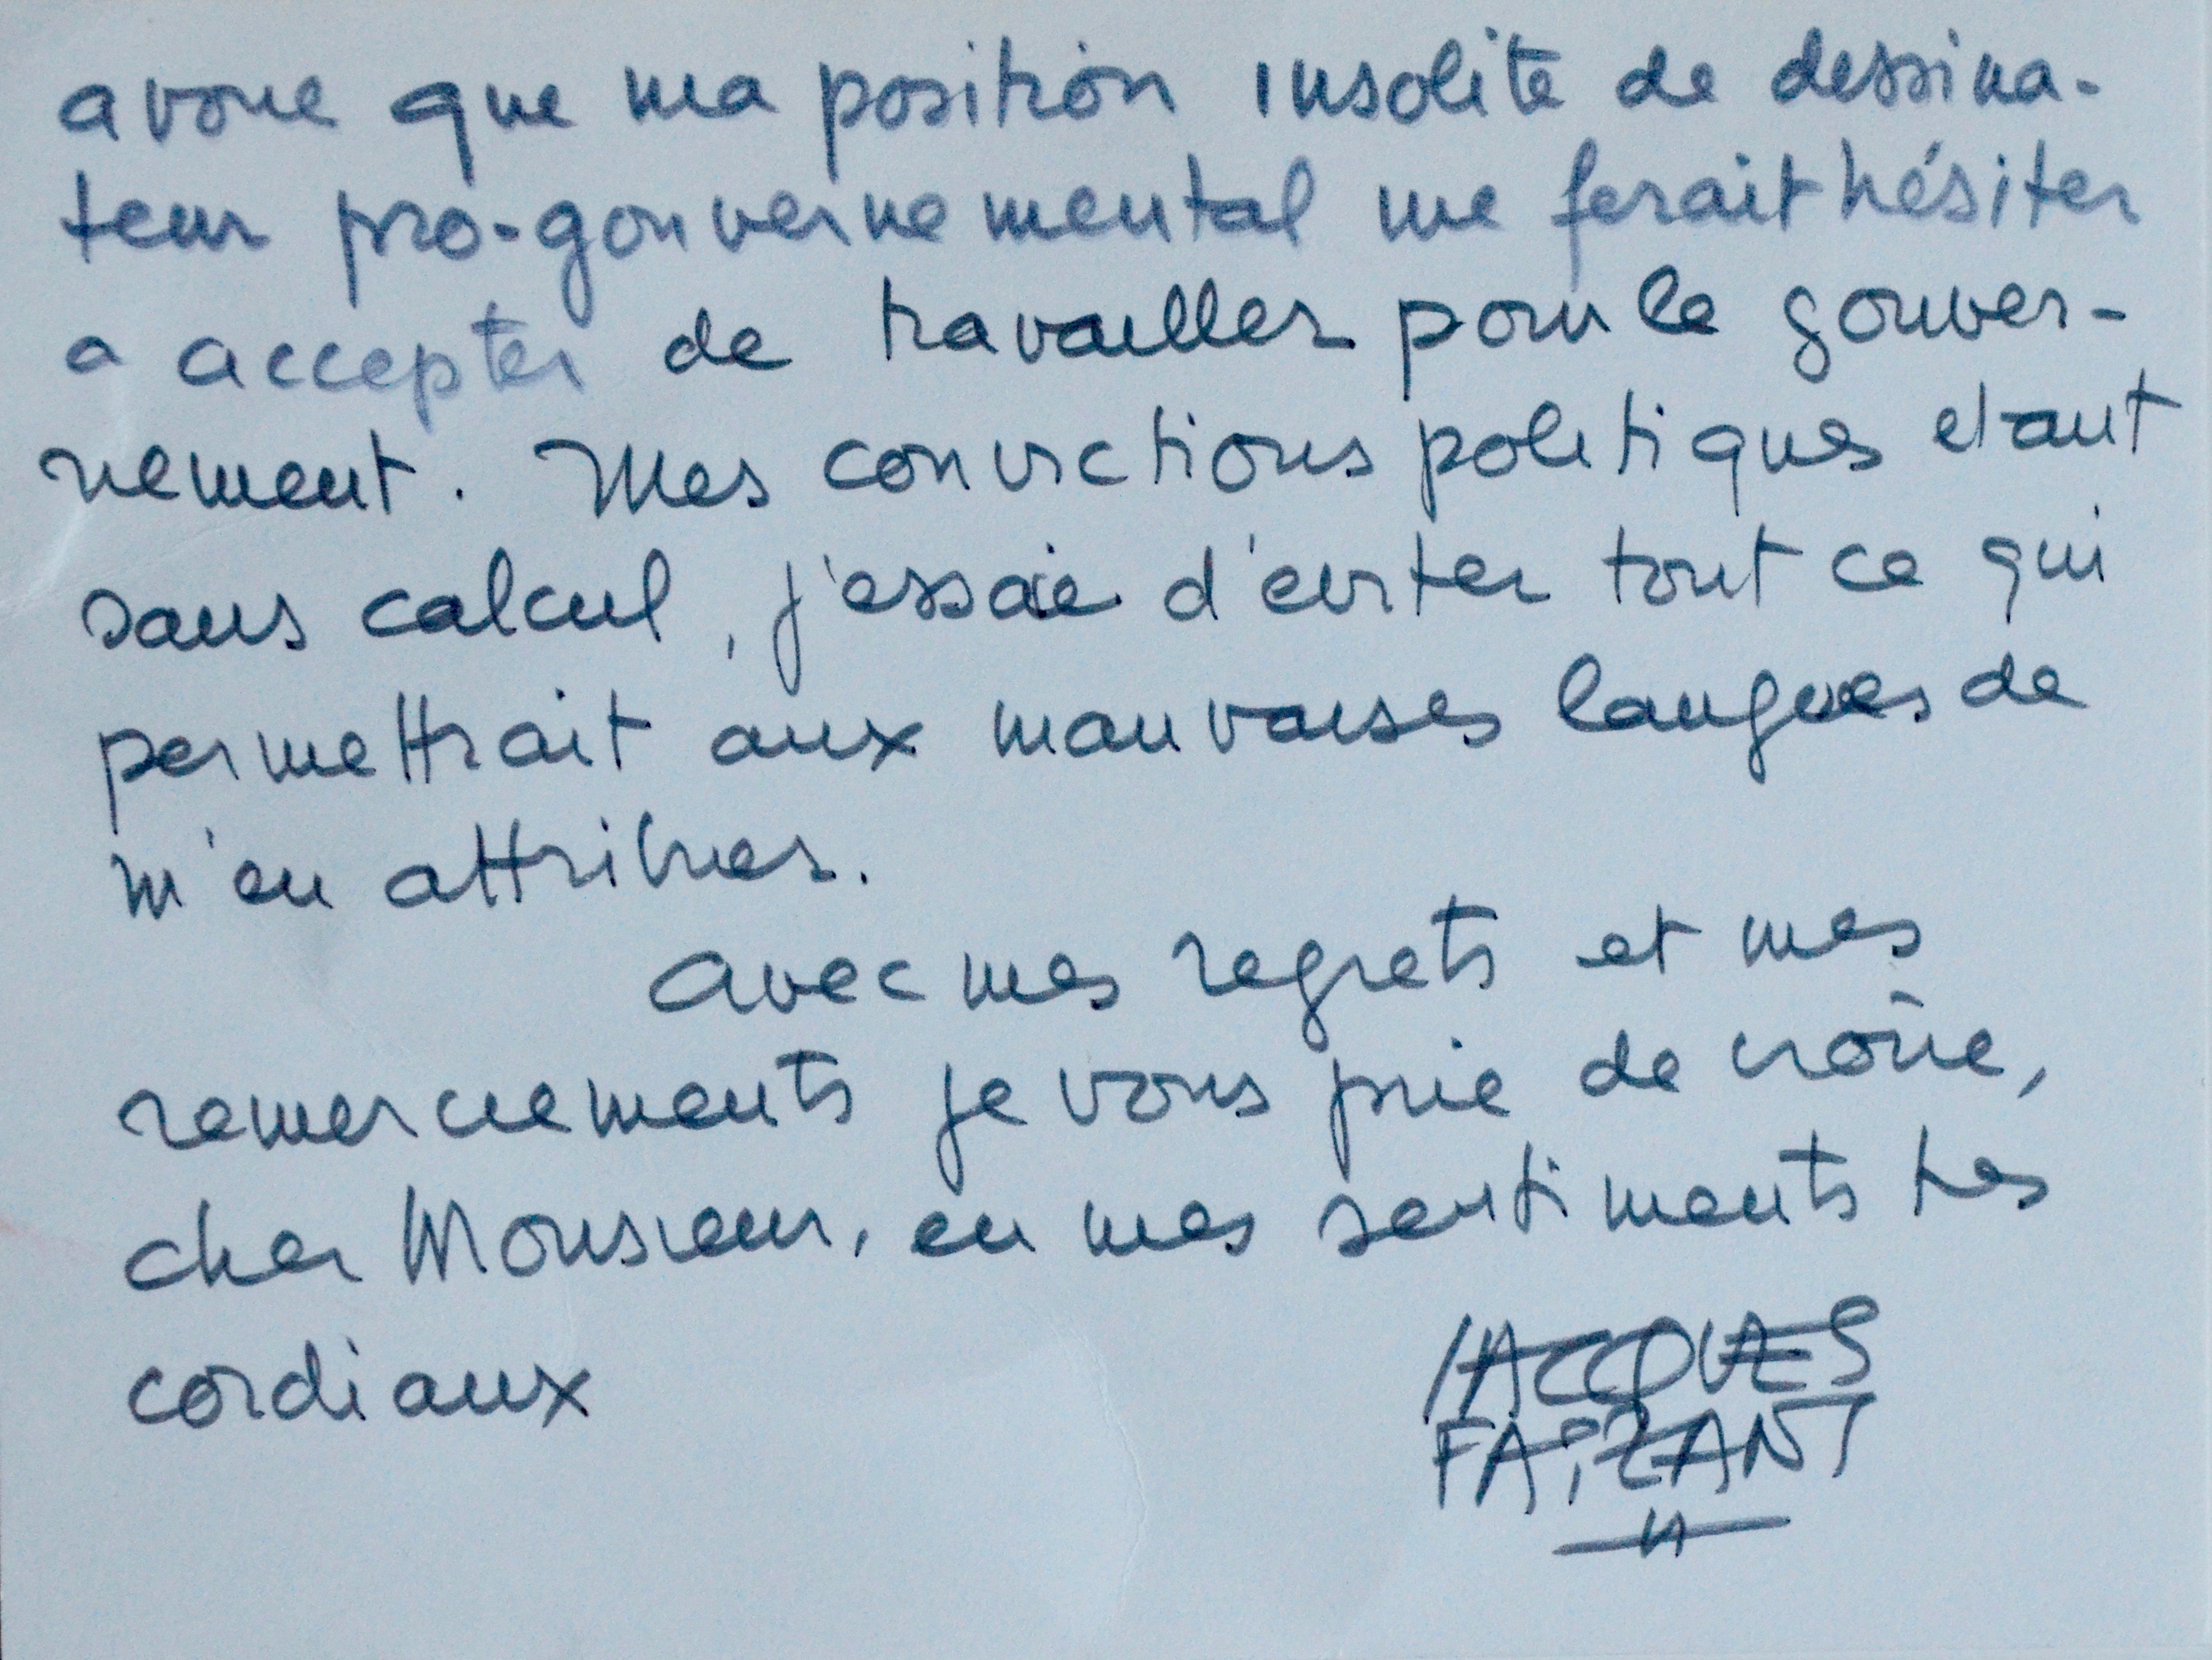 avoue que ma position insolite de dessina-
teur pro-gouvernemental me ferait hésiter
a accepter de travailler pour le gouver-
nement. Mes convictions politiques etant
sans calcul, j'essaie d'eviter tout ce qui
permettrait aux mauvaises langues de
m'en attribuer.
Avec mes regrets et mes
remerciements je vous prie de croire,
cher Monsieur, en mes sentiments tres
cordiaux
JACQUES
FAIZANT